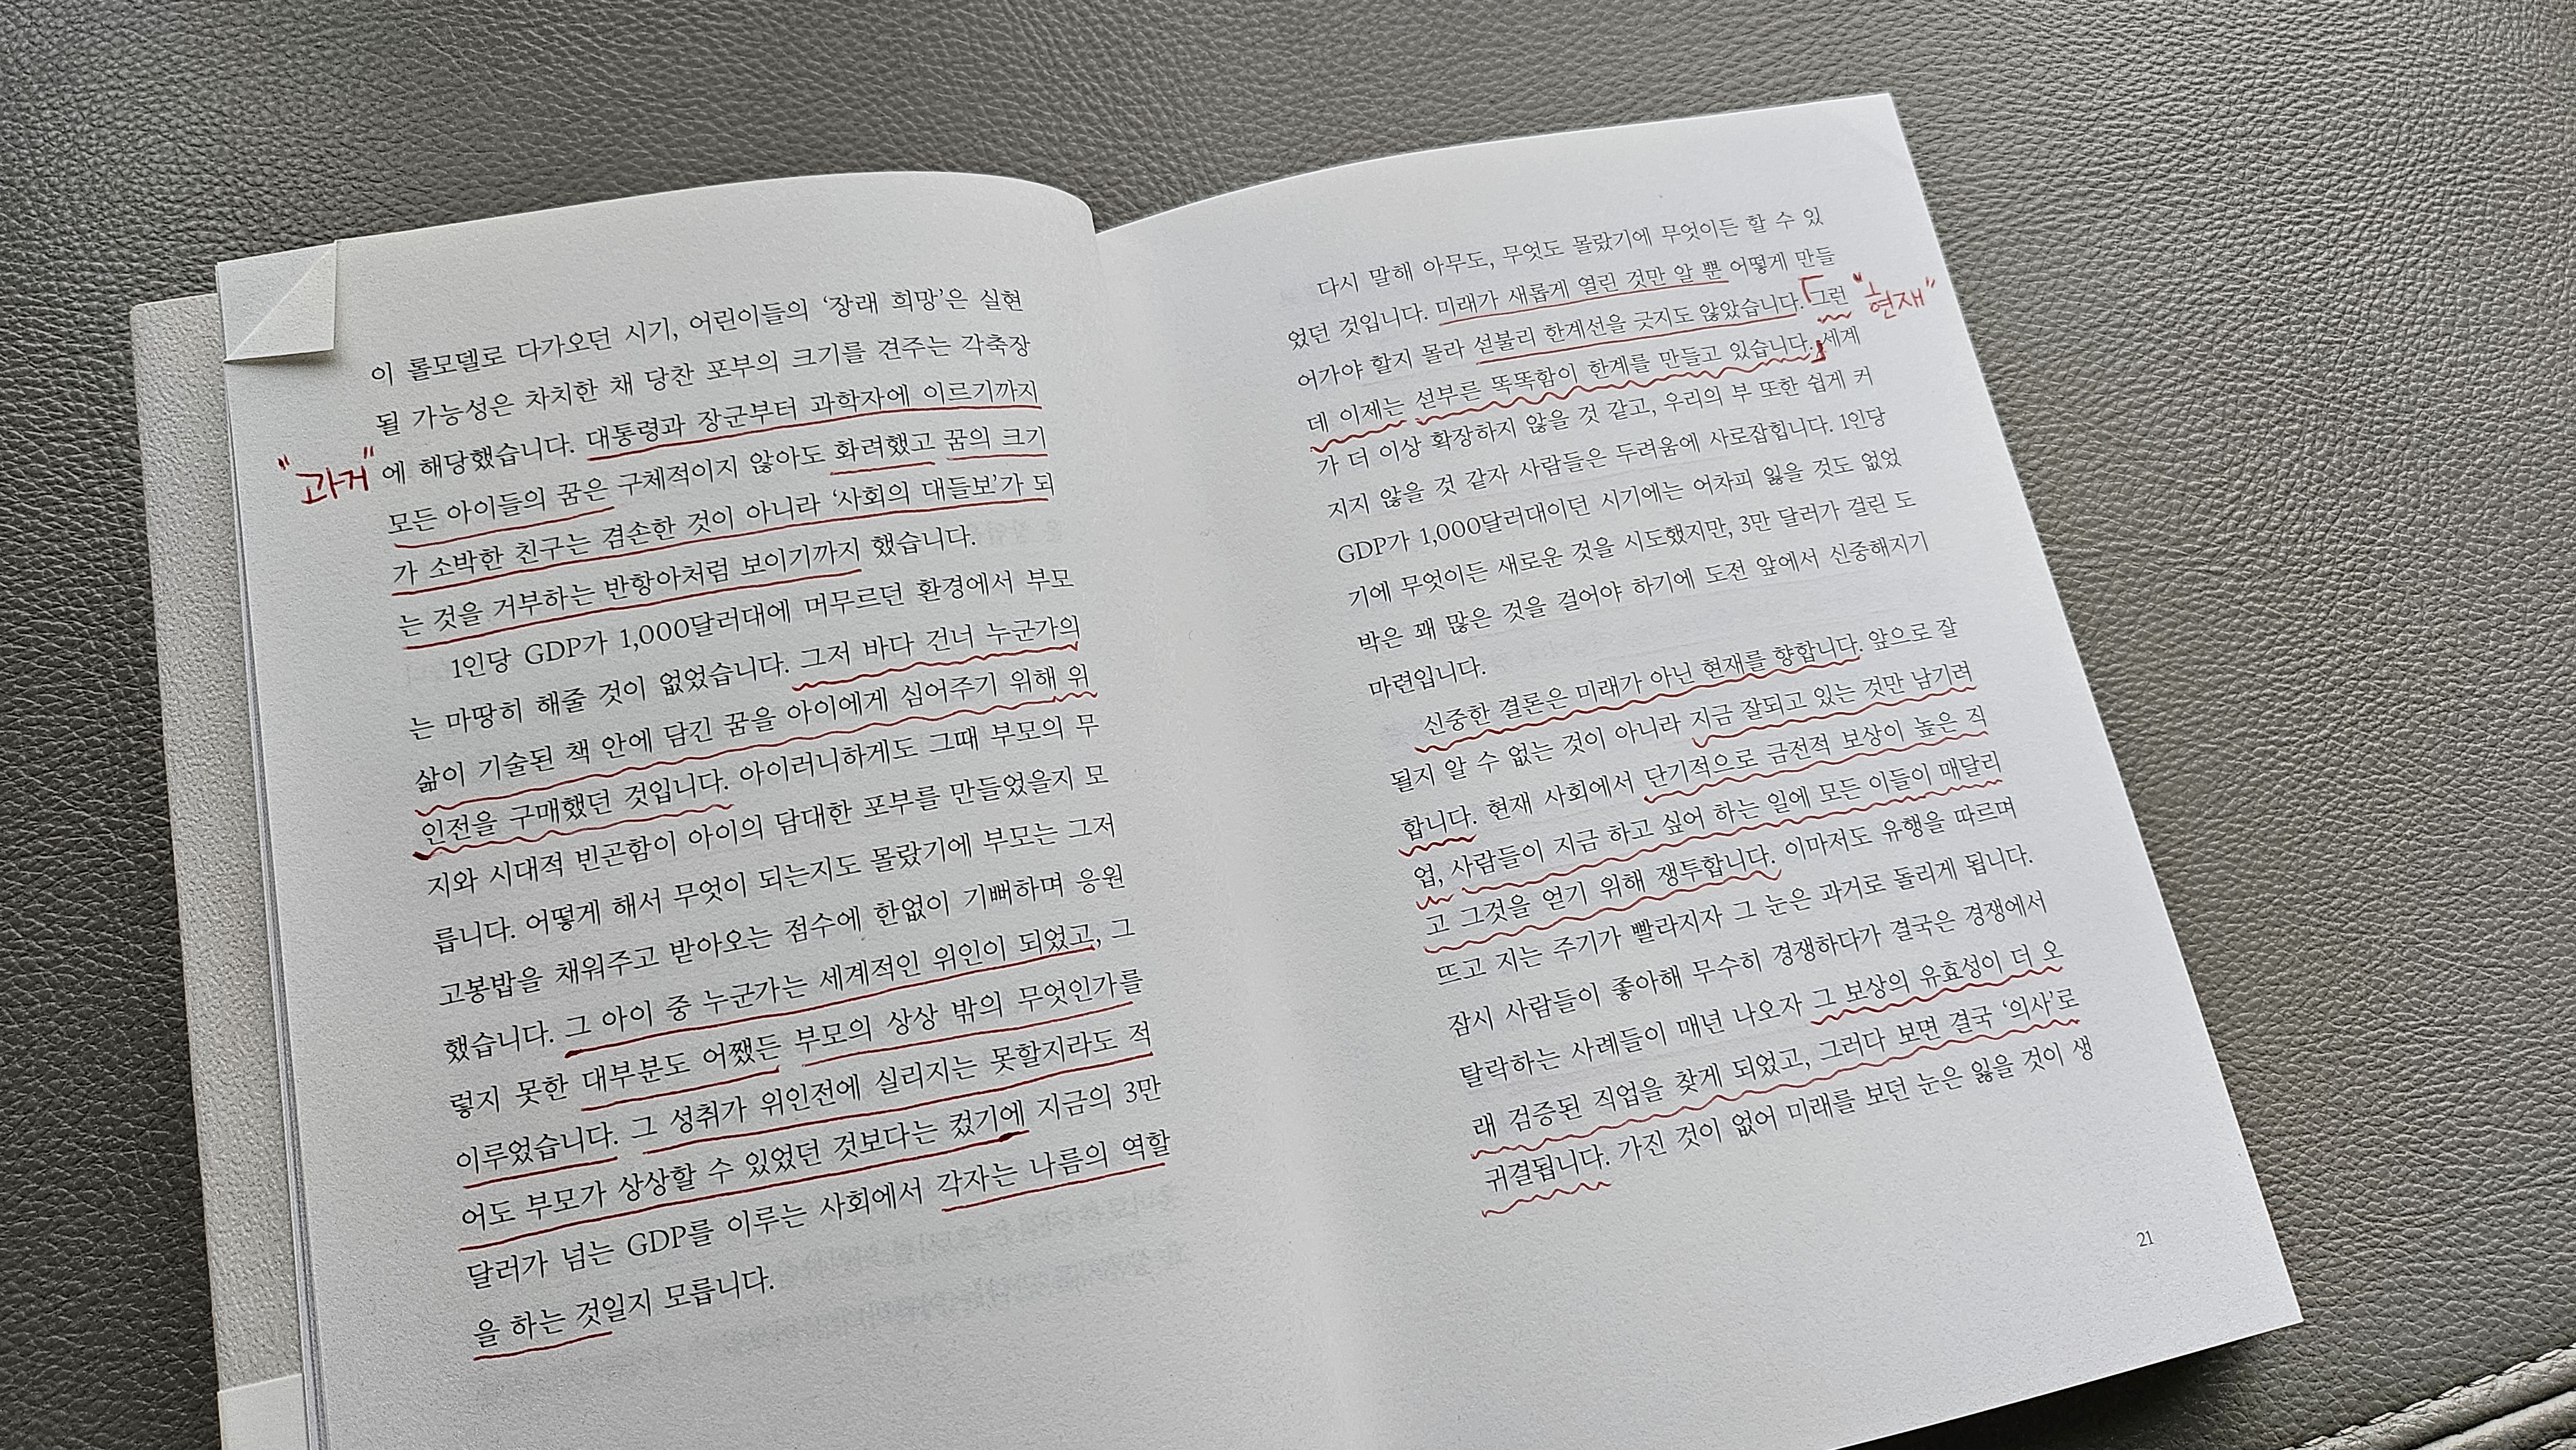 이 롤모델로 다가오던 시기, 어린이들의 ‘장래 희망’은 실현
될 가능성은 차치한 채 당찬 포부의 크기를 견주는 각축장
"과거"
에 해당했습니다. 대통령과 장군부터 과학자에 이르기까지
모든 아이들의 꿈은 구체적이지 않아도 화려했고 꿈의 크기
가 소박한 친구는 겸손한 것이 아니라 ‘사회의 대들보’가 되
는 것을 거부하는 반항아처럼 보이기까지 했습니다.
1인당 GDP가 1,000달러대에 머무르던 환경에서 부모
는 마땅히 해줄 것이 없었습니다. 그저 바다 건너 누군가의
삶이 기술된 책 안에 담긴 꿈을 아이에게 심어주기 위해 위
인전을 구매했던 것입니다. 아이러니하게도 그때 부모의 무
지와 시대적 빈곤함이 아이의 담대한 포부를 만들었을지 모
릅니다. 어떻게 해서 무엇이 되는지도 몰랐기에 부모는 그저
고봉밥을 채워주고 받아오는 점수에 한없이 기뻐하며 응원
했습니다. 그 아이 중 누군가는 세계적인 위인이 되었고, 그
렇지 못한 대부분도 어쨌든 부모의 상상 밖의 무엇인가를
이루었습니다. 그 성취가 위인전에 실리지는 못할지라도 적
어도 부모가 상상할 수 있었던 것보다는 컸기에 지금의 3만
달러가 넘는 GDP를 이루는 사회에서 각자는 나름의 역할
을 하는 것일지 모릅니다.
다시 말해 아무도, 무엇도 몰랐기에 무엇이든 할 수 있
었던 것입니다. 미래가 새롭게 열린 것만 알 뿐 어떻게 만들
어가야 할지 몰라 섣불리 한계선을 긋지도 않았습니다. 그런
"현재"
데 이제는 섣부른 똑똑함이 한계를 만들고 있습니다. 세계
가 더 이상 확장하지 않을 것 같고, 우리의 부 또한 쉽게 커
지지 않을 것 같자 사람들은 두려움에 사로잡힙니다. 1인당
GDP가 1,000달러대이던 시기에는 어차피 잃을 것도 없었
기에 무엇이든 새로운 것을 시도했지만, 3만 달러가 걸린 도
박은 꽤 많은 것을 걸어야 하기에 도전 앞에서 신중해지기
마련입니다.
신중한 결론은 미래가 아닌 현재를 향합니다. 앞으로 잘
될지 알 수 없는 것이 아니라 지금 잘되고 있는 것만 남기려
합니다. 현재 사회에서 단기적으로 금전적 보상이 높은 직
업, 사람들이 지금 하고 싶어 하는 일에 모든 이들이 매달리
고 그것을 얻기 위해 쟁투합니다. 이마저도 유행을 따르며
뜨고 지는 주기가 빨라지자 그 눈은 과거로 돌리게 됩니다.
잠시 사람들이 좋아해 무수히 경쟁하다가 결국은 경쟁에서
탈락하는 사례들이 매년 나오자 그 보상의 유효성이 더 오
래 검증된 직업을 찾게 되었고, 그러다 보면 결국 ‘의사’로
귀결됩니다. 가진 것이 없어 미래를 보던 눈은 잃을 것이 생
21